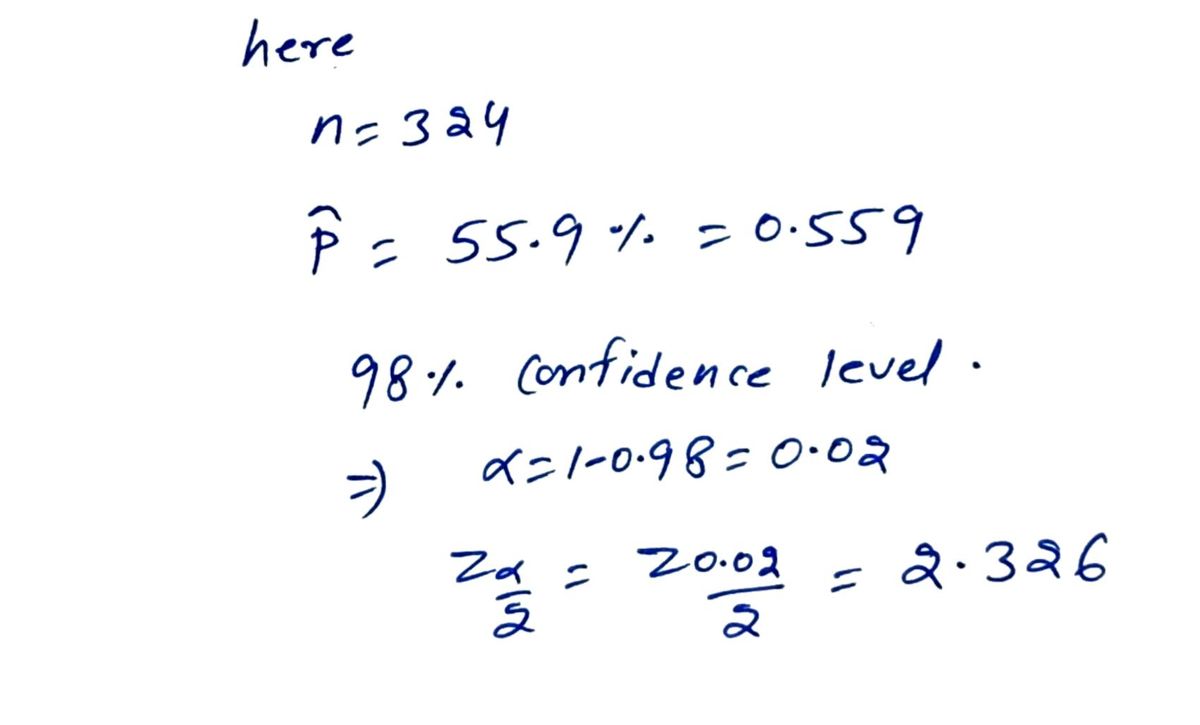 here
n = 324
p̂ = 55.9 % = 0.559
98 % confidence level .
⇒ α = 1-0.98 = 0.02
Z_{α/2} = Z_{0.02/2} = 2.326